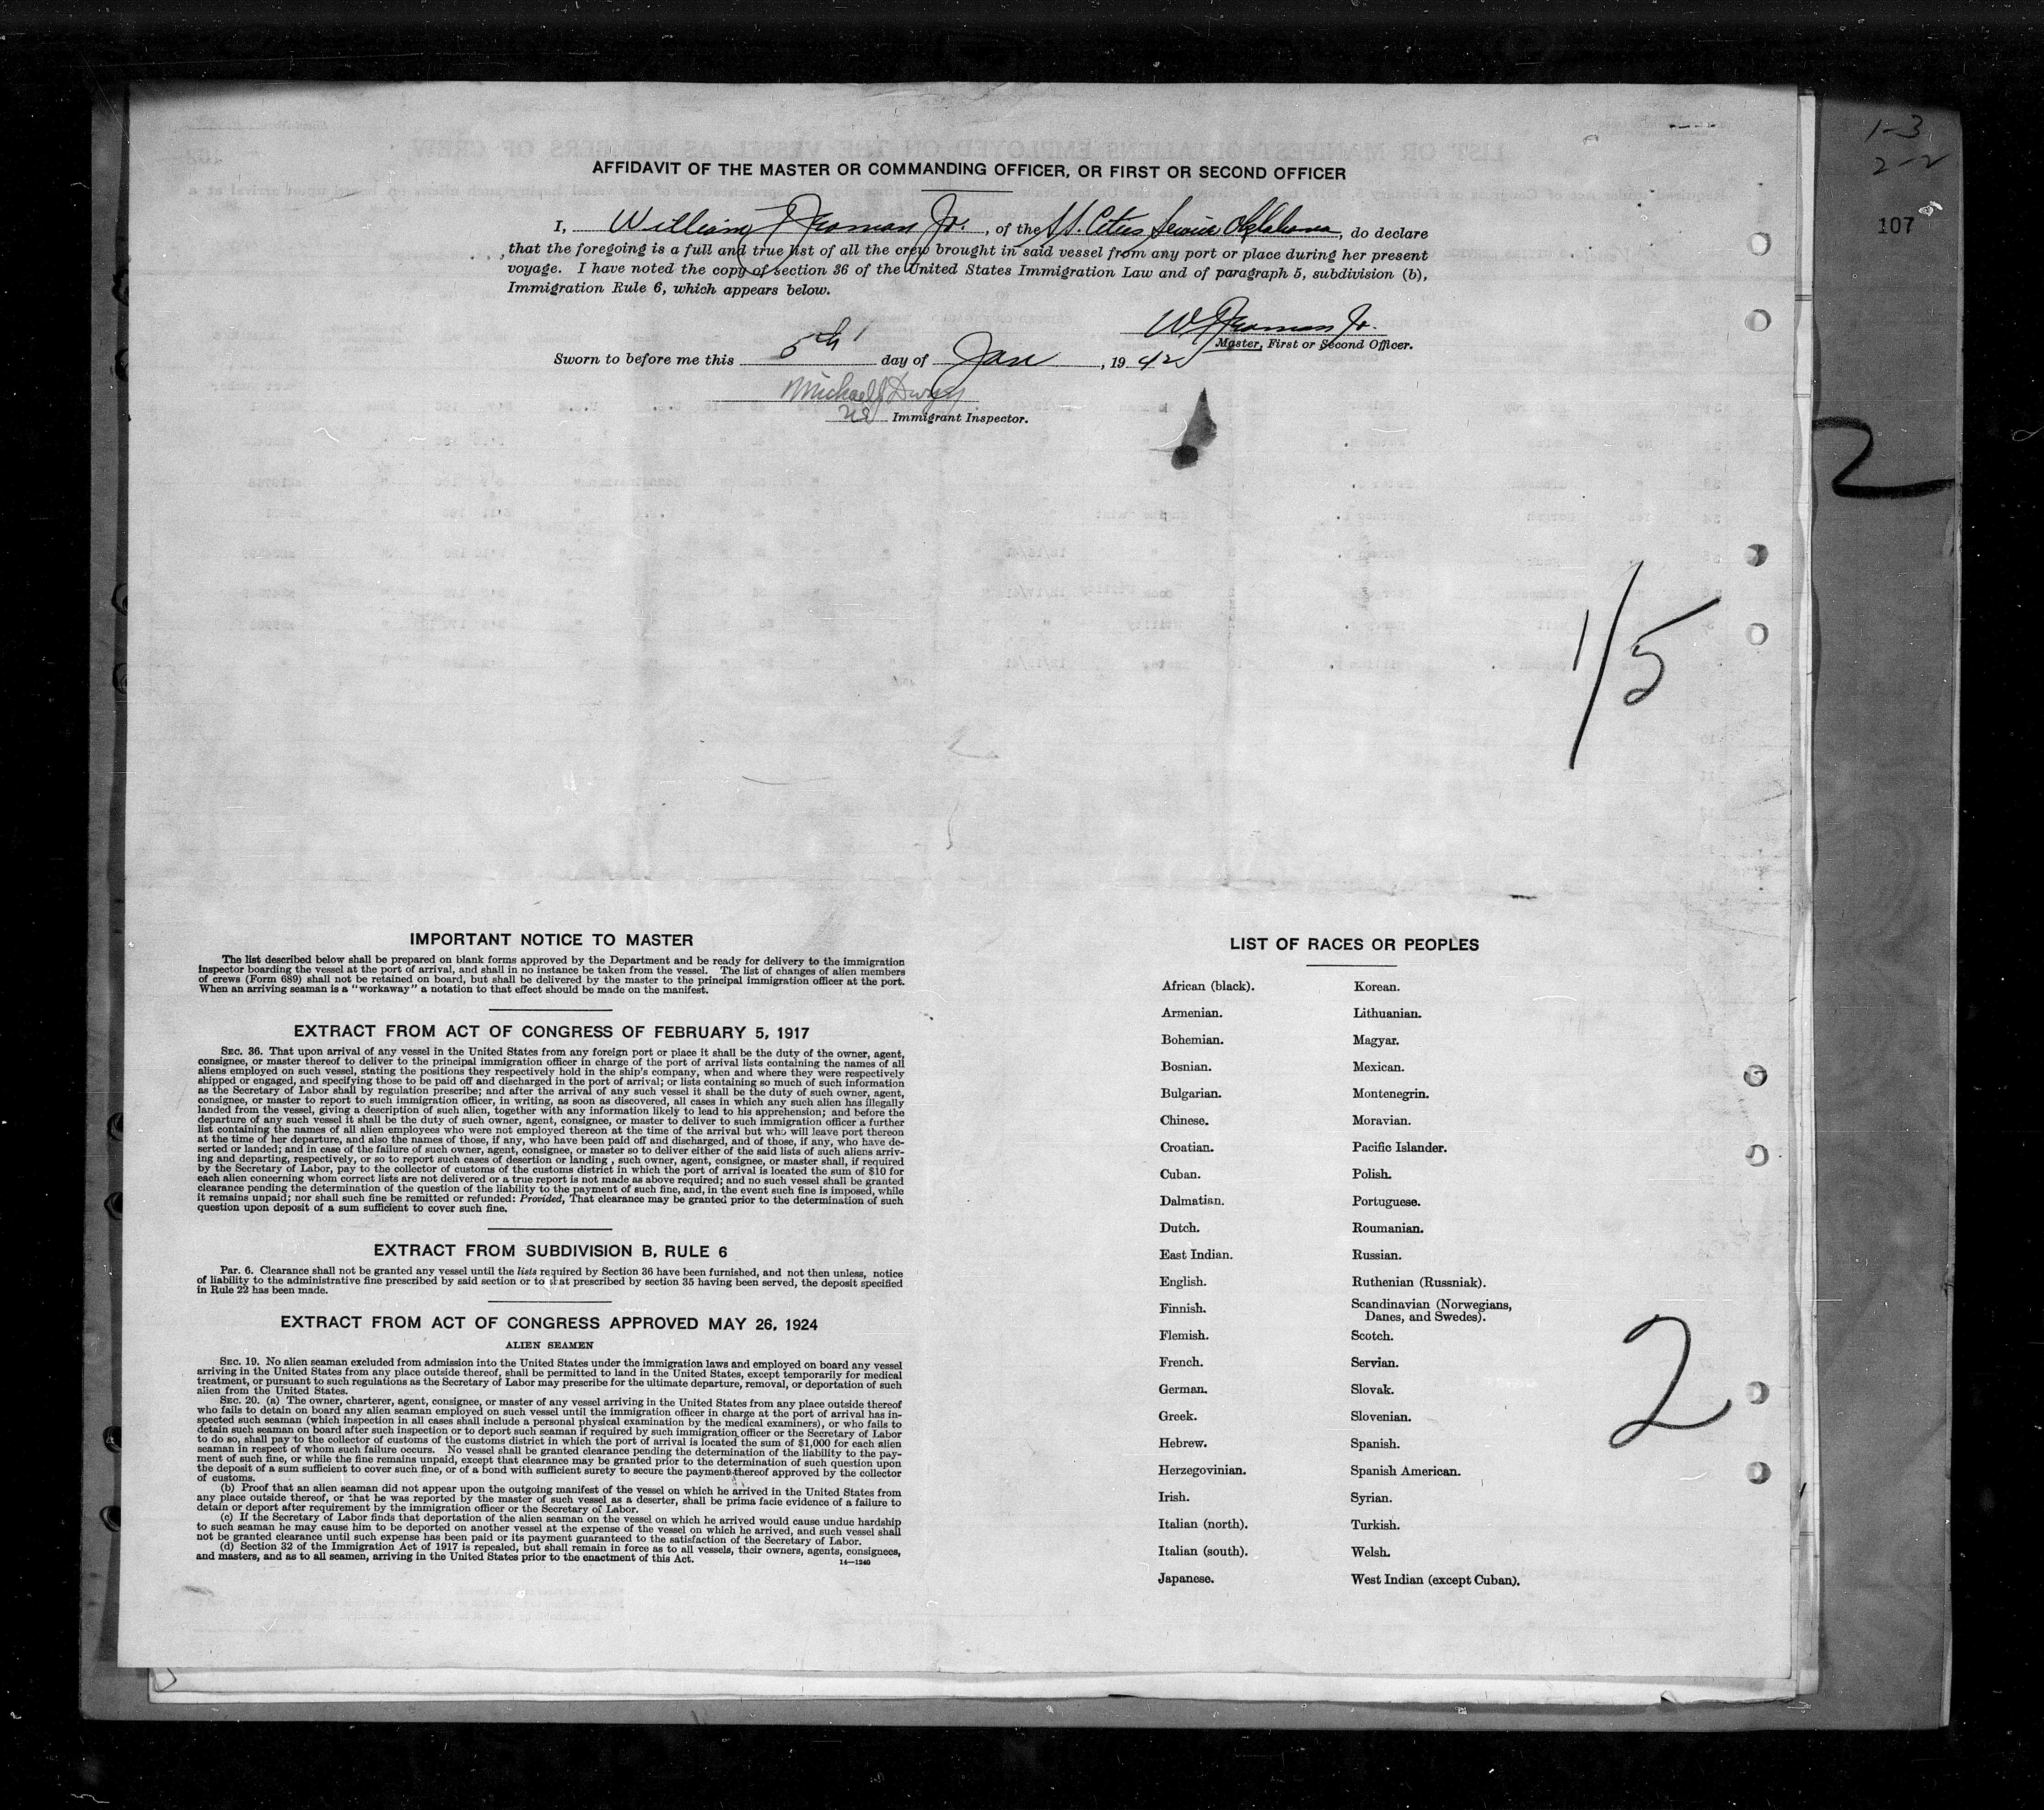 1-3
2-2
107
AFFIDAVIT OF THE MASTER OR COMMANDING OFFICER, OR FIRST OR SECOND OFFICER
I, William Jr. , of the SS. Cities Service Oklahoma, do declare
that the foregoing is a full and true list of all the crew brought in said vessel from any port or place during her present
voyage. I have noted the copy of section 36 of the United States Immigration Law and of paragraph 5, subdivision (b),
Immigration Rule 6, which appears below.
W Jr.
Master, First or Second Officer.
Sworn to before me this 5th day of Jan , 19 42
Michael J Dwyer
US Immigrant Inspector.
2
1/5
IMPORTANT NOTICE TO MASTER
The list described below shall be prepared on blank forms approved by the Department and be ready for delivery to the immigration
inspector boarding the vessel at the port of arrival, and shall in no instance be taken from the vessel. The list of changes of alien members
of crews (Form 689) shall not be retained on board, but shall be delivered by the master to the principal immigration officer at the port.
When an arriving seaman is a "workaway" a notation to that effect should be made on the manifest.
EXTRACT FROM ACT OF CONGRESS OF FEBRUARY 5, 1917
SEC. 36. That upon arrival of any vessel in the United States from any foreign port or place it shall be the duty of the owner, agent,
consignee, or master thereof to deliver to the principal immigration officer in charge of the port of arrival lists containing the names of all
aliens employed on such vessel, stating the positions they respectively hold in the ship's company, when and where they were respectively
shipped or engaged, and specifying those to be paid off and discharged in the port of arrival; or lists containing so much of such information
as the Secretary of Labor shall by regulation prescribe; and after the arrival of any such vessel it shall be the duty of such owner, agent,
consignee, or master to report to such immigration officer, in writing, as soon as discovered, all cases in which any such alien has illegally
landed from the vessel, giving a description of such alien, together with any information likely to lead to his apprehension; and before the
departure of any such vessel it shall be the duty of such owner, agent, consignee, or master to deliver to such immigration officer a further
list containing the names of all alien employees who were not employed thereon at the time of the arrival but who will leave port thereon
at the time of her departure, and also the names of those, if any, who have been paid off and discharged, and of those, if any, who have de-
serted or landed; and in case of the failure of such owner, agent, consignee, or master so to deliver either of the said lists of such aliens arriv-
ing and departing, respectively, or so to report such cases of desertion or landing , such owner, agent, consignee, or master shall, if required
by the Secretary of Labor, pay to the collector of customs of the customs district in which the port of arrival is located the sum of $10 for
each alien concerning whom correct lists are not delivered or a true report is not made as above required; and no such vessel shall be granted
clearance pending the determination of the question of the liability to the payment of such fine, and, in the event such fine is imposed, while
it remains unpaid; nor shall such fine be remitted or refunded: Provided, That clearance may be granted prior to the determination of such
question upon deposit of a sum sufficient to cover such fine.
EXTRACT FROM SUBDIVISION B, RULE 6
Par. 6. Clearance shall not be granted any vessel until the lists required by Section 36 have been furnished, and not then unless, notice
of liability to the administrative fine prescribed by said section or to that prescribed by section 35 having been served, the deposit specified
in Rule 22 has been made.
EXTRACT FROM ACT OF CONGRESS APPROVED MAY 26, 1924
ALIEN SEAMEN
SEC. 19. No alien seaman excluded from admission into the United States under the immigration laws and employed on board any vessel
arriving in the United States from any place outside thereof, shall be permitted to land in the United States, except temporarily for medical
treatment, or pursuant to such regulations as the Secretary of Labor may prescribe for the ultimate departure, removal, or deportation of such
alien from the United States.
SEC. 20. (a) The owner, charterer, agent, consignee, or master of any vessel arriving in the United States from any place outside thereof
who fails to detain on board any alien seaman employed on such vessel until the immigration officer in charge at the port of arrival has in-
spected such seaman (which inspection in all cases shall include a personal physical examination by the medical examiners), or who fails to
detain such seaman on board after such inspection or to deport such seaman if required by such immigration officer or the Secretary of Labor
to do so, shall pay to the collector of customs of the customs district in which the port of arrival is located the sum of $1,000 for each alien
seaman in respect of whom such failure occurs. No vessel shall be granted clearance pending the determination of the liability to the pay-
ment of such fine, or while the fine remains unpaid, except that clearance may be granted prior to the determination of such question upon
the deposit of a sum sufficient to cover such fine, or of a bond with sufficient surety to secure the payment thereof approved by the collector
of customs.
(b) Proof that an alien seaman did not appear upon the outgoing manifest of the vessel on which he arrived in the United States from
any place outside thereof, or that he was reported by the master of such vessel as a deserter, shall be prima facie evidence of a failure to
detain or deport after requirement by the immigration officer or the Secretary of Labor.
(c) If the Secretary of Labor finds that deportation of the alien seaman on the vessel on which he arrived would cause undue hardship
to such seaman he may cause him to be deported on another vessel at the expense of the vessel on which he arrived, and such vessel shall
not be granted clearance until such expense has been paid or its payment guaranteed to the satisfaction of the Secretary of Labor.
(d) Section 32 of the Immigration Act of 1917 is repealed, but shall remain in force as to all vessels, their owners, agents, consignees,
and masters, and as to all seamen, arriving in the United States prior to the enactment of this Act.
14—1240
LIST OF RACES OR PEOPLES
African (black). Korean.
Armenian. Lithuanian.
Bohemian. Magyar.
Bosnian. Mexican.
Bulgarian. Montenegrin.
Chinese. Moravian.
Croatian. Pacific Islander.
Cuban. Polish.
Dalmatian. Portuguese.
Dutch. Roumanian.
East Indian. Russian.
English. Ruthenian (Russniak).
Finnish. Scandinavian (Norwegians,
Danes, and Swedes).
Flemish. Scotch.
French. Servian.
German. Slovak.
Greek. Slovenian.
Hebrew. Spanish.
Herzegovinian. Spanish American.
Irish. Syrian.
Italian (north). Turkish.
Italian (south). Welsh.
Japanese. West Indian (except Cuban).
2